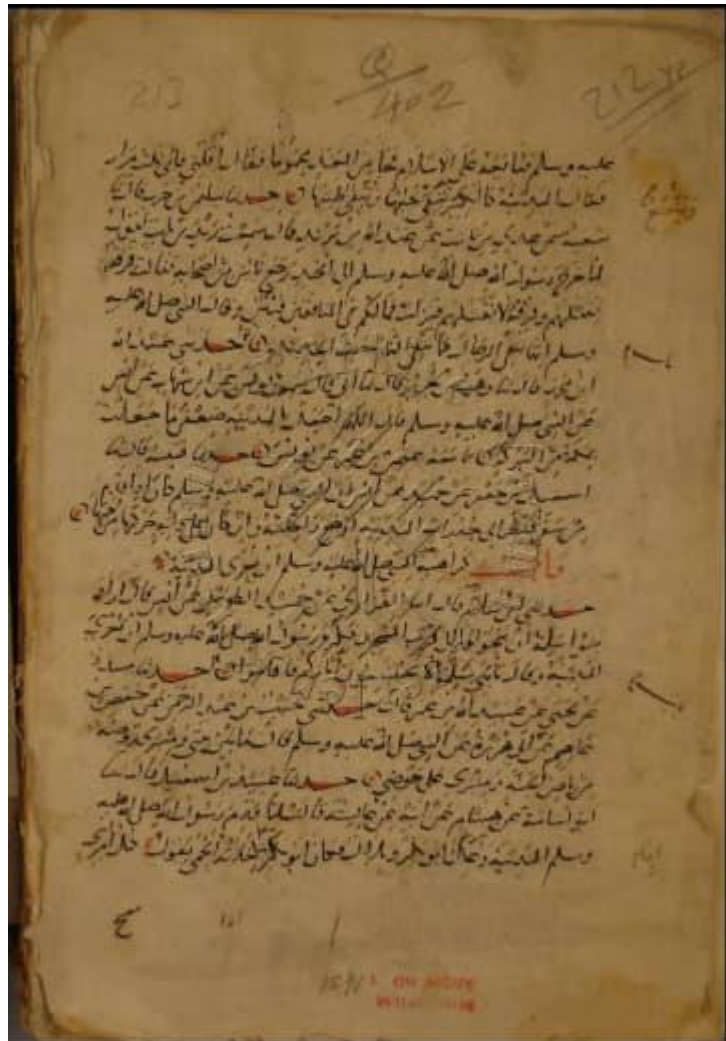 213
Q
402
212
عليه وسلم فبايعه على الاسلام فجا من الغد محموما فقال اقلني فابى ثلاث مرار
فقال المدينة كالكير تنفي خبثها وينصع طيبها حدثنا سليمن بن حرب قال حدثنا
شعبة عن عدي بن ثابت عن عبد الله بن يزيد قال سمعت زيد بن ثابت يقول
لما خرج رسول الله صلى الله عليه وسلم الى احد رجع ناس من اصحابه فقالت فرقة
نقتلهم وفرقة لا نقتلهم فنزلت فما لكم في المنافقين فئتين وقال النبي صلى الله عليه
وسلم انها تنفي الرجال كما تنفي النار خبث الحديد حدثني عبد الله
ابن محمد قال حدثنا وهب بن جرير قال حدثنا ابي قال سمعت يونس عن ابن شهاب عن انس
عن النبي صلى الله عليه وسلم قال اللهم اجعل بالمدينة ضعفي ما جعلت
بمكة من البركة تابعه عثمن بن عمر عن يونس حدثنا قتيبة قال حدثنا
اسمعيل بن جعفر عن حميد عن انس ان النبي صلى الله عليه وسلم كان اذا قدم
من سفر فنظر الى جدرات المدينة اوضع راحلته وان كان على دابة حركها من حبها
باب كراهية النبي صلى الله عليه وسلم ان تعرى المدينة
حدثني ابن سلام قال اخبرنا الفزاري عن حميد الطويل عن انس قال اراد
بنو سلمة ان يتحولوا الى قرب المسجد فكره رسول الله صلى الله عليه وسلم ان تعرى
المدينة وقال يا بني سلمة الا تحتسبون اثاركم فاقاموا حدثنا مسدد
عن يحيى عن عبيد الله بن عمر قال حدثني خبيب بن عبد الرحمن عن حفص بن
عاصم عن ابي هريرة عن النبي صلى الله عليه وسلم قال ما بين بيتي ومنبري روضة
من رياض الجنة ومنبري على حوضي حدثنا عبيد بن اسمعيل قال حدثنا
ابو اسامة عن هشام عن ابيه عن عايشة قالت لما قدم رسول الله صلى الله عليه
وسلم المدينة وعك ابو بكر وبلال فكان ابو بكر اذا اخذته الحمى يقول كل امرئ